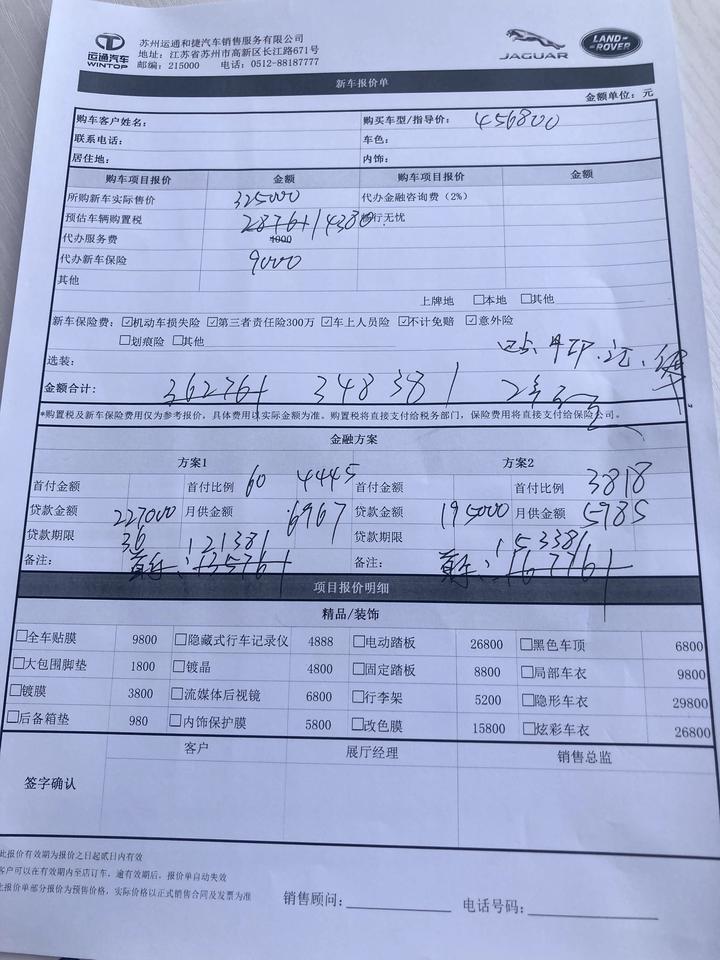 运通汽车
WINTOP
苏州运通和捷汽车销售服务有限公司
地址：江苏省苏州市高新区长江路671号
邮编：215000 电话：0512-88187777
JAGUAR
LAND-ROVER
新车报价单
金额单位：元
购车客户姓名： 购买车型/指导价： 456800
联系电话： 车色：
居住地： 内饰：
购车项目报价 金额 购车项目报价 金额
所购新车实际售价 325000 代办金融咨询费（2%）
预估车辆购置税 28761 14380 行无忧
代办服务费 1000
代办新车保险 9000
其他
上牌地 □本地 □其他
新车保险费：☑机动车损失险 ☑第三者责任险300万 ☑车上人员险 ☑不计免赔 ☑意外险
□划痕险 □其他
选装：
金额合计： 362761 348381
*购置税及新车保险费用仅为参考报价，具体费用以实际金额为准。购置税将直接支付给税务部门，保险费用将直接支付给保险公司。
金融方案
方案1 方案2
首付金额 首付比例 60 4445 首付金额 首付比例 3818
贷款金额 227000 月供金额 6967 贷款金额 195000 月供金额 5985
贷款期限 36 121381 贷款期限 153381
备注： 首付：135761 备注： 首付：167761
项目报价明细
精品/装饰
□全车贴膜 9800 □隐藏式行车记录仪 4888 □电动踏板 26800 □黑色车顶 6800
□大包围脚垫 1800 □镀晶 4800 □固定踏板 8800 □局部车衣 9800
□镀膜 3800 □流媒体后视镜 6800 □行李架 5200 □隐形车衣 29800
□后备箱垫 980 □内饰保护膜 5800 □改色膜 15800 □炫彩车衣 26800
客户 展厅经理 销售总监
签字确认
此报价有效期为报价之日起贰日内有效
客户可以在有效期内至店订车，逾有效期后，报价单自动失效
此报价单部分报价为预售价格，实际价格以正式销售合同及发票为准
销售顾问： 电话号码：